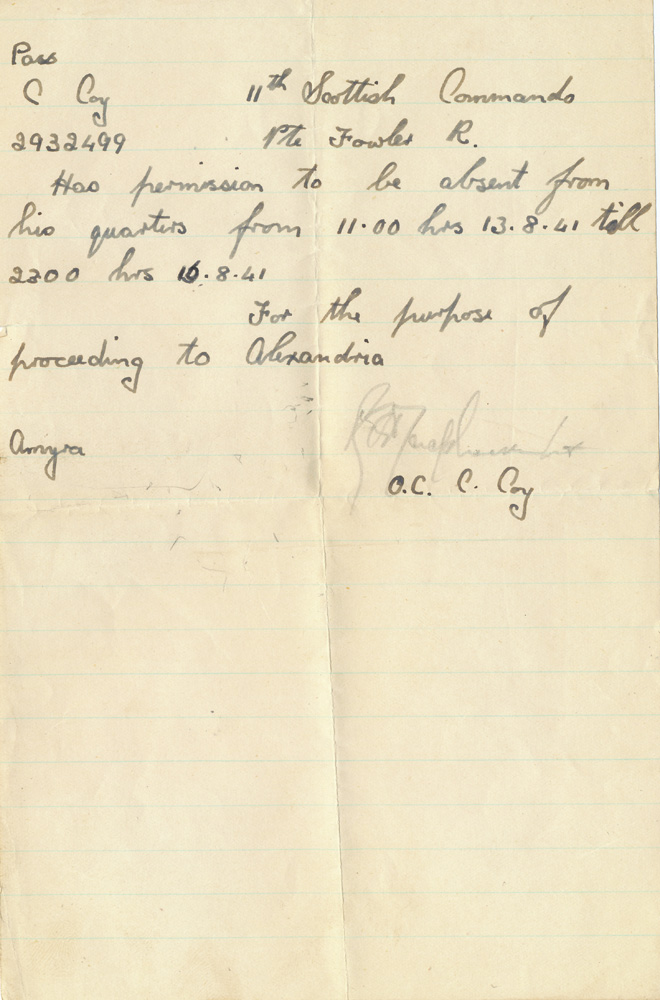 Pass
C Coy 11th Scottish Commando
2932499 Pte Fowler R.
Has permission to be absent from
his quarters from 11.00 hrs 13.8.41 till
2300 hrs 16.8.41
For the purpose of
proceeding to Alexandria
Amyra
O.C. C. Coy